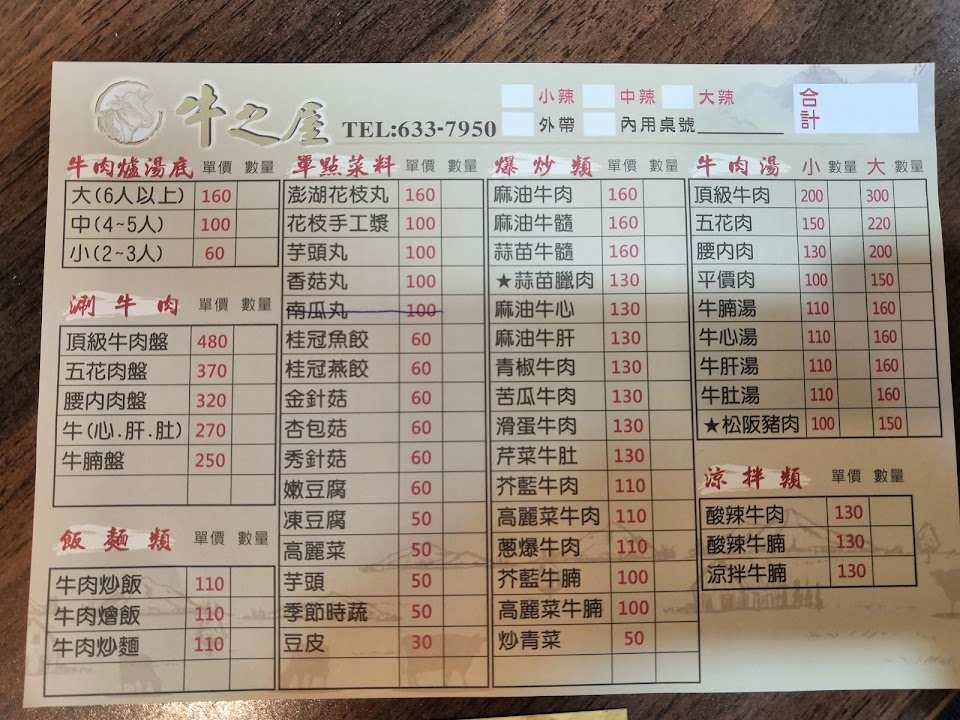 牛之屋 TEL:633-7950
小辣 中辣 大辣
外帶 內用桌號
合計
牛肉爐湯底 單價 數量
大(6人以上) 160
中(4~5人) 100
小(2~3人) 60
涮牛肉 單價 數量
頂級牛肉盤 480
五花肉盤 370
腰內肉盤 320
牛(心.肝.肚) 270
牛腩盤 250
飯麵類 單價 數量
牛肉炒飯 110
牛肉燴飯 110
牛肉炒麵 110
單點菜料 單價 數量
澎湖花枝丸 160
花枝手工漿 100
芋頭丸 100
香菇丸 100
南瓜丸 100
桂冠魚餃 60
桂冠燕餃 60
金針菇 60
杏包菇 60
秀針菇 60
嫩豆腐 60
凍豆腐 50
高麗菜 50
芋頭 50
季節時蔬 50
豆皮 30
爆炒類 單價 數量
麻油牛肉 160
麻油牛髓 160
蒜苗牛髓 160
★蒜苗臘肉 130
麻油牛心 130
麻油牛肝 130
青椒牛肉 130
苦瓜牛肉 130
滑蛋牛肉 130
芹菜牛肚 130
芥藍牛肉 110
高麗菜牛肉 110
蔥爆牛肉 110
芥藍牛腩 100
高麗菜牛腩 100
炒青菜 50
牛肉湯 小 數量 大 數量
頂級牛肉 200 300
五花肉 150 220
腰內肉 130 200
平價肉 100 150
牛腩湯 110 160
牛心湯 110 160
牛肝湯 110 160
牛肚湯 110 160
★松阪豬肉 100 150
涼拌類 單價 數量
酸辣牛肉 130
酸辣牛腩 130
涼拌牛腩 130